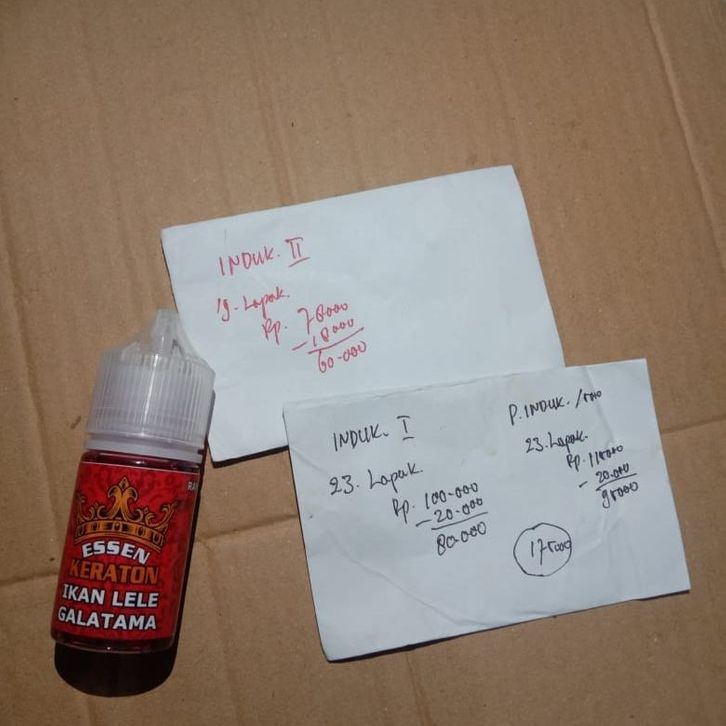 INDUK. II
19. Lapak.
Rp. 78000
- 18000
60.000
INDUK. I
23. Lapak.
Rp. 100.000
- 20.000
80.000
P. INDUK. /5000
23. Lapak.
Rp. 115000
- 20.000
95000
175000
ESSEN
KERATON
IKAN LELE
GALATAMA